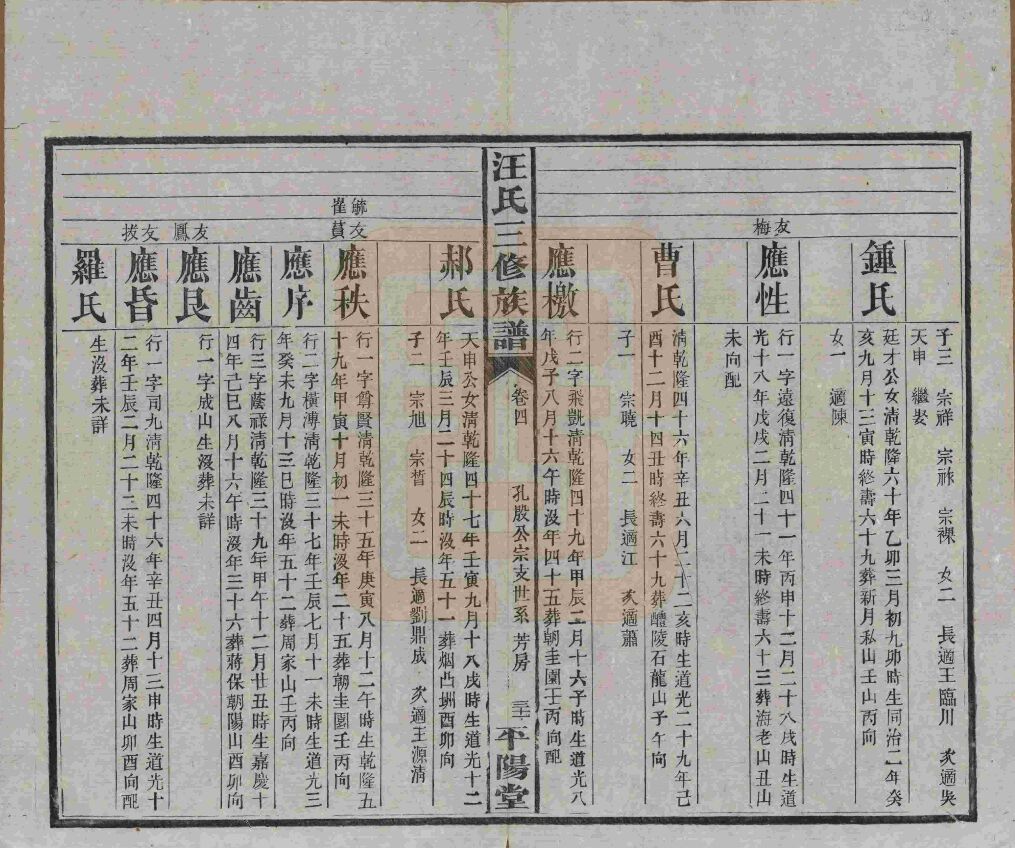 子三 宗祥 宗祿 宗祼 女二 長適王臨川 次適吳
天申 繼娶
鍾氏
廷才公女清乾隆六十年乙卯三月初九卯時生同治二年癸
亥九月十三寅時終壽六十九葬新月私山壬山丙向
女一 適陳
友梅
應性
行一字遠復清乾隆四十一年丙申十二月二十八戌時生道
光十八年戊戌二月二十一未時終壽六十三葬海老山丑山
未向配
曹氏
清乾隆四十六年辛丑六月二十二亥時生道光二十九年己
酉十二月十四丑時終壽六十九葬醴陵石龍山子午向
子一 宗曉 女二 長適江 次適蕭
應檄
行二字飛凱清乾隆四十九年甲辰二月十六子時生道光八
年戊子八月十六午時沒年四十五葬朝圭園壬丙向配
汪氏三修族譜 卷四 孔殷公宗支世系 芳房 三十一 平陽堂
郝氏
天申公女清乾隆四十七年壬寅九月十八戌時生道光十二
年壬辰三月二十四辰時沒年五十一葬烟凸坳酉卯向
子二 宗旭 宗晳 女二 長適劉鼎成 次適王源清
毓友
崔蕡
應秩
行一字尊賢清乾隆三十五年庚寅八月十二午時生乾隆五
十九年甲寅十月初一未時沒年二十五葬朝圭園壬丙向
應序
行二字橫溥清乾隆三十七年壬辰七月十一未時生道光三
年癸未九月十三巳時沒年五十二葬周家山壬丙向
應齒
行三字蔭祿清乾隆三十九年甲午十二月廿丑時生嘉慶十
四年己巳八月十六午時沒年三十六葬蔣保朝陽山酉卯向
友鳳
應艮
行一字成山生沒葬未詳
友拔
應昏
行一字司九清乾隆四十六年辛丑四月十三申時生道光十
二年壬辰二月二十三未時沒年五十二葬周家山卯酉向配
羅氏
生沒葬未詳